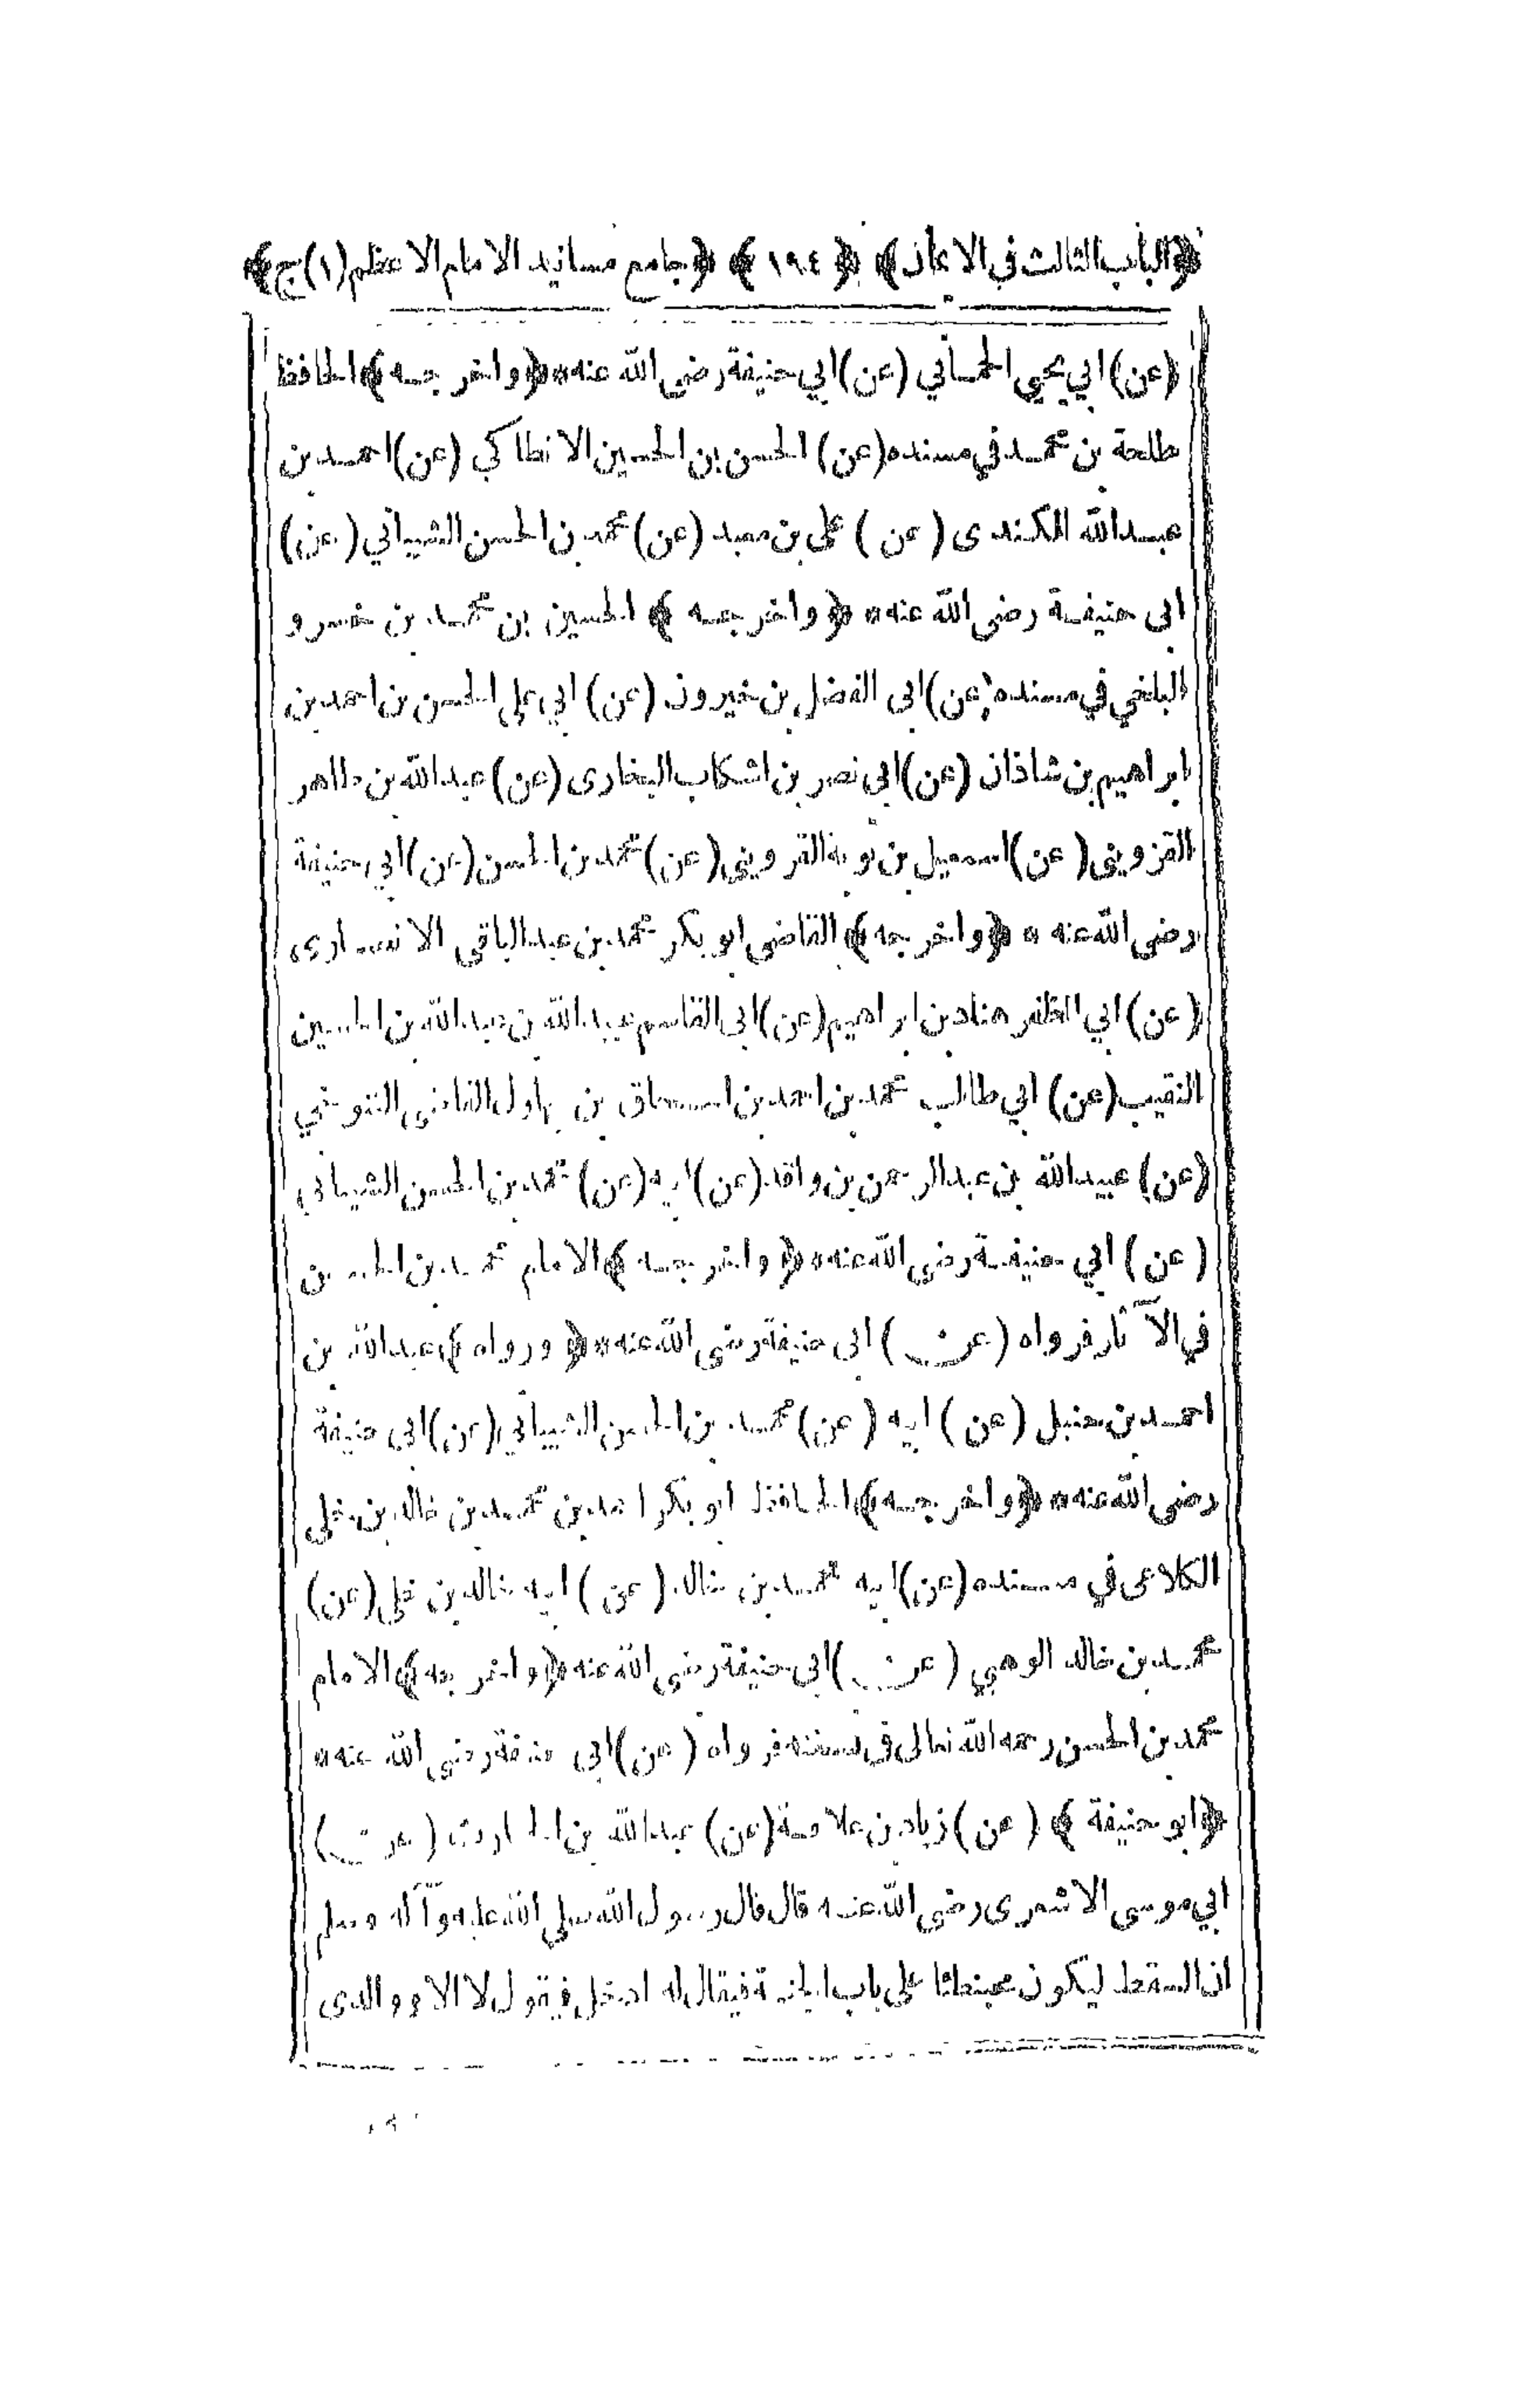 ﴿الباب الثالث في الايمان﴾ ﴿١٩٤﴾ ﴿جامع مسانيد الامام الاعظم (١) ج﴾
(عن) ابي يحيى الحماني (عن) ابي حنيفة رضى الله عنه * ﴿واخرجه﴾ الحافظ
طلحة بن محمد في مسنده (عن) الحسن بن الحسين الانطاكي (عن) احمد بن
عبد الله الكندى (عن) على بن معبد (عن) محمد بن الحسن الشيباني (عن)
ابى حنيفة رضى الله عنه * ﴿واخرجه﴾ الحسين بن محمد بن خسرو
البلخي في مسنده (عن) ابى الفضل بن خيرون (عن) ابي على الحسن بن احمد بن
ابراهيم بن شاذان (عن) ابى نصر بن اشكاب البخارى (عن) عبد الله بن طاهر
القزويني (عن) اسمعيل بن توبة القزويني (عن) محمد بن الحسن (عن) ابي حنيفة
رضى الله عنه * ﴿واخرجه﴾ القاضى ابو بكر محمد بن عبد الباقى الانصارى
(عن) ابي المظفر هناد بن ابراهيم (عن) ابى القاسم عبيد الله بن عبد الله بن الحسين
النقيب (عن) ابي طالب محمد بن احمد بن اسحاق بن بهلول القاضى التنوخي
(عن) عبيد الله بن عبد الرحمن بن واقد (عن) ابيه (عن) محمد بن الحسن الشيباني
(عن) ابي حنيفة رضي الله عنه * ﴿واخرجه﴾ الامام محمد بن الحسن
في الآثار فرواه (عن) ابى حنيفة رضى الله عنه * ﴿ورواه﴾ عبد الله بن
احمد بن حنبل (عن) ابيه (عن) محمد بن الحسن الشيباني (عن) ابى حنيفة
رضى الله عنه * ﴿واخرجه﴾ الحافظ ابو بكر احمد بن محمد بن خالد بن خلي
الكلاعى في مسنده (عن) ابيه محمد بن خالد (عن) ابيه خالد بن خلي (عن)
محمد بن خالد الوهبي (عن) ابى حنيفة رضى الله عنه * ﴿واخرجه﴾ الامام
محمد بن الحسن رحمه الله تعالى في نسخته فرواه (عن) ابى حنيفة رضي الله عنه *
﴿ابو حنيفة﴾ (عن) زياد بن علاقة (عن) عبد الله بن الحارث (عن)
ابي موسى الاشعرى رضي الله عنه قال قال رسول الله صلى الله عليه وآله وسلم
ان السقط ليكون محبنطئا على باب الجنة فيقال له ادخل فيقول لا الا ووالدى